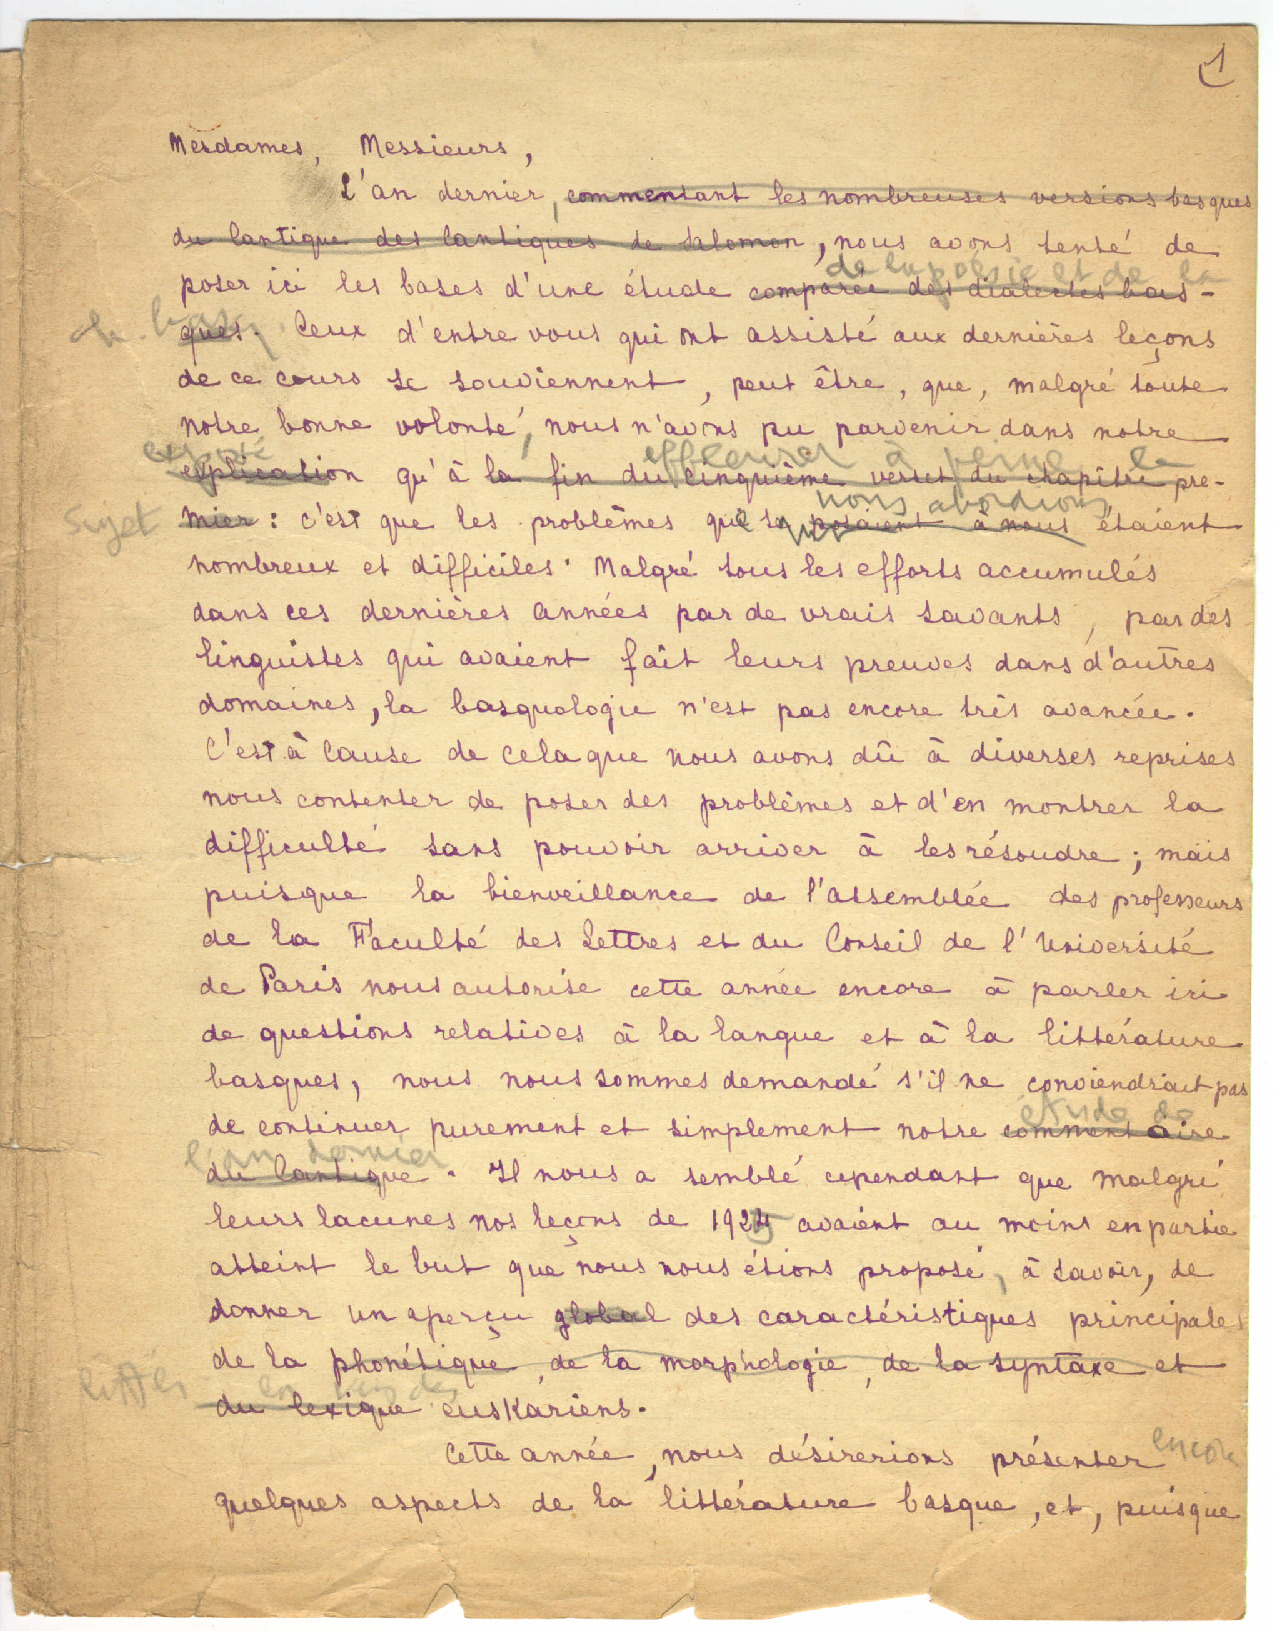 1
Mesdames, Messieurs,
L'an dernier, commentant les nombreuses versions basques
du Cantique des Cantiques de Salomon, nous avons tenté de
de la poésie et de la
poser ici les bases d'une étude comparée des dialectes bas-
ques. Ceux d'entre vous qui ont assisté aux dernières leçons
de ce cours se souviennent, peut être, que, malgré toute
notre bonne volonté, nous n'avons pu parvenir dans notre
exposé effleurer à peine le
explication qu'à la fin du cinquième verset du chapitre pre-
sujet nous abordions
mier : c'est que les problèmes que se posaient à nous étaient
nombreux et difficiles. Malgré tous les efforts accumulés
dans ces dernières années par de vrais savants, par des
linguistes qui avaient fait leurs preuves dans d'autres
domaines, la basquologie n'est pas encore très avancée.
C'est à cause de cela que nous avons dû à diverses reprises
nous contenter de poser des problèmes et d'en montrer la
difficulté sans pouvoir arriver à les résoudre ; mais
puisque la bienveillance de l'assemblée des professeurs
de la Faculté des Lettres et du Conseil de l'Université
de Paris nous autorise cette année encore à parler ici
de questions relatives à la langue et à la littérature
basques, nous nous sommes demandé s'il ne conviendrait pas
étude de
de continuer purement et simplement notre commentaire
l'an dernier
du Cantique. Il nous a semblé cependant que malgré
leurs lacunes nos leçons de 1925 avaient au moins en partie
atteint le but que nous nous étions proposé, à savoir, de
donner un aperçu global des caractéristiques principales
de la phonétique, de la morphologie, de la syntaxe et
du lexique euskariens.
Cette année, nous désirerions présenter encore
quelques aspects de la littérature basque, et, puisque